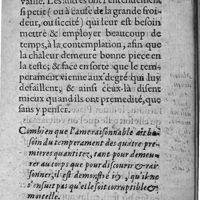 vaille. Les autres ont l'entendement
si petit (ou à cause de la grande froi-
deur, ou siccité) qui leur est besoin
mettre & employer beaucoup de
temps, à la contemplation, afin que
la chaleur demeure bonne piece en
la teste; & face en sorte que le tem-
perament vienne aux degré qui luy
defaillent, & ainsi ceux-là disent
mieux quand ils ont premedité, que
sans y penser.
Combien que l'ame raisonnable ait be-
soin du temperament des quatre pre-
mieres quantitez, tant pour demeu-
rer au corps que pour discourir & rai-
sonner, il est demonstré icy, qu'il ne
s'ensuit pas qu'elle soit corruptible &
mortelle.